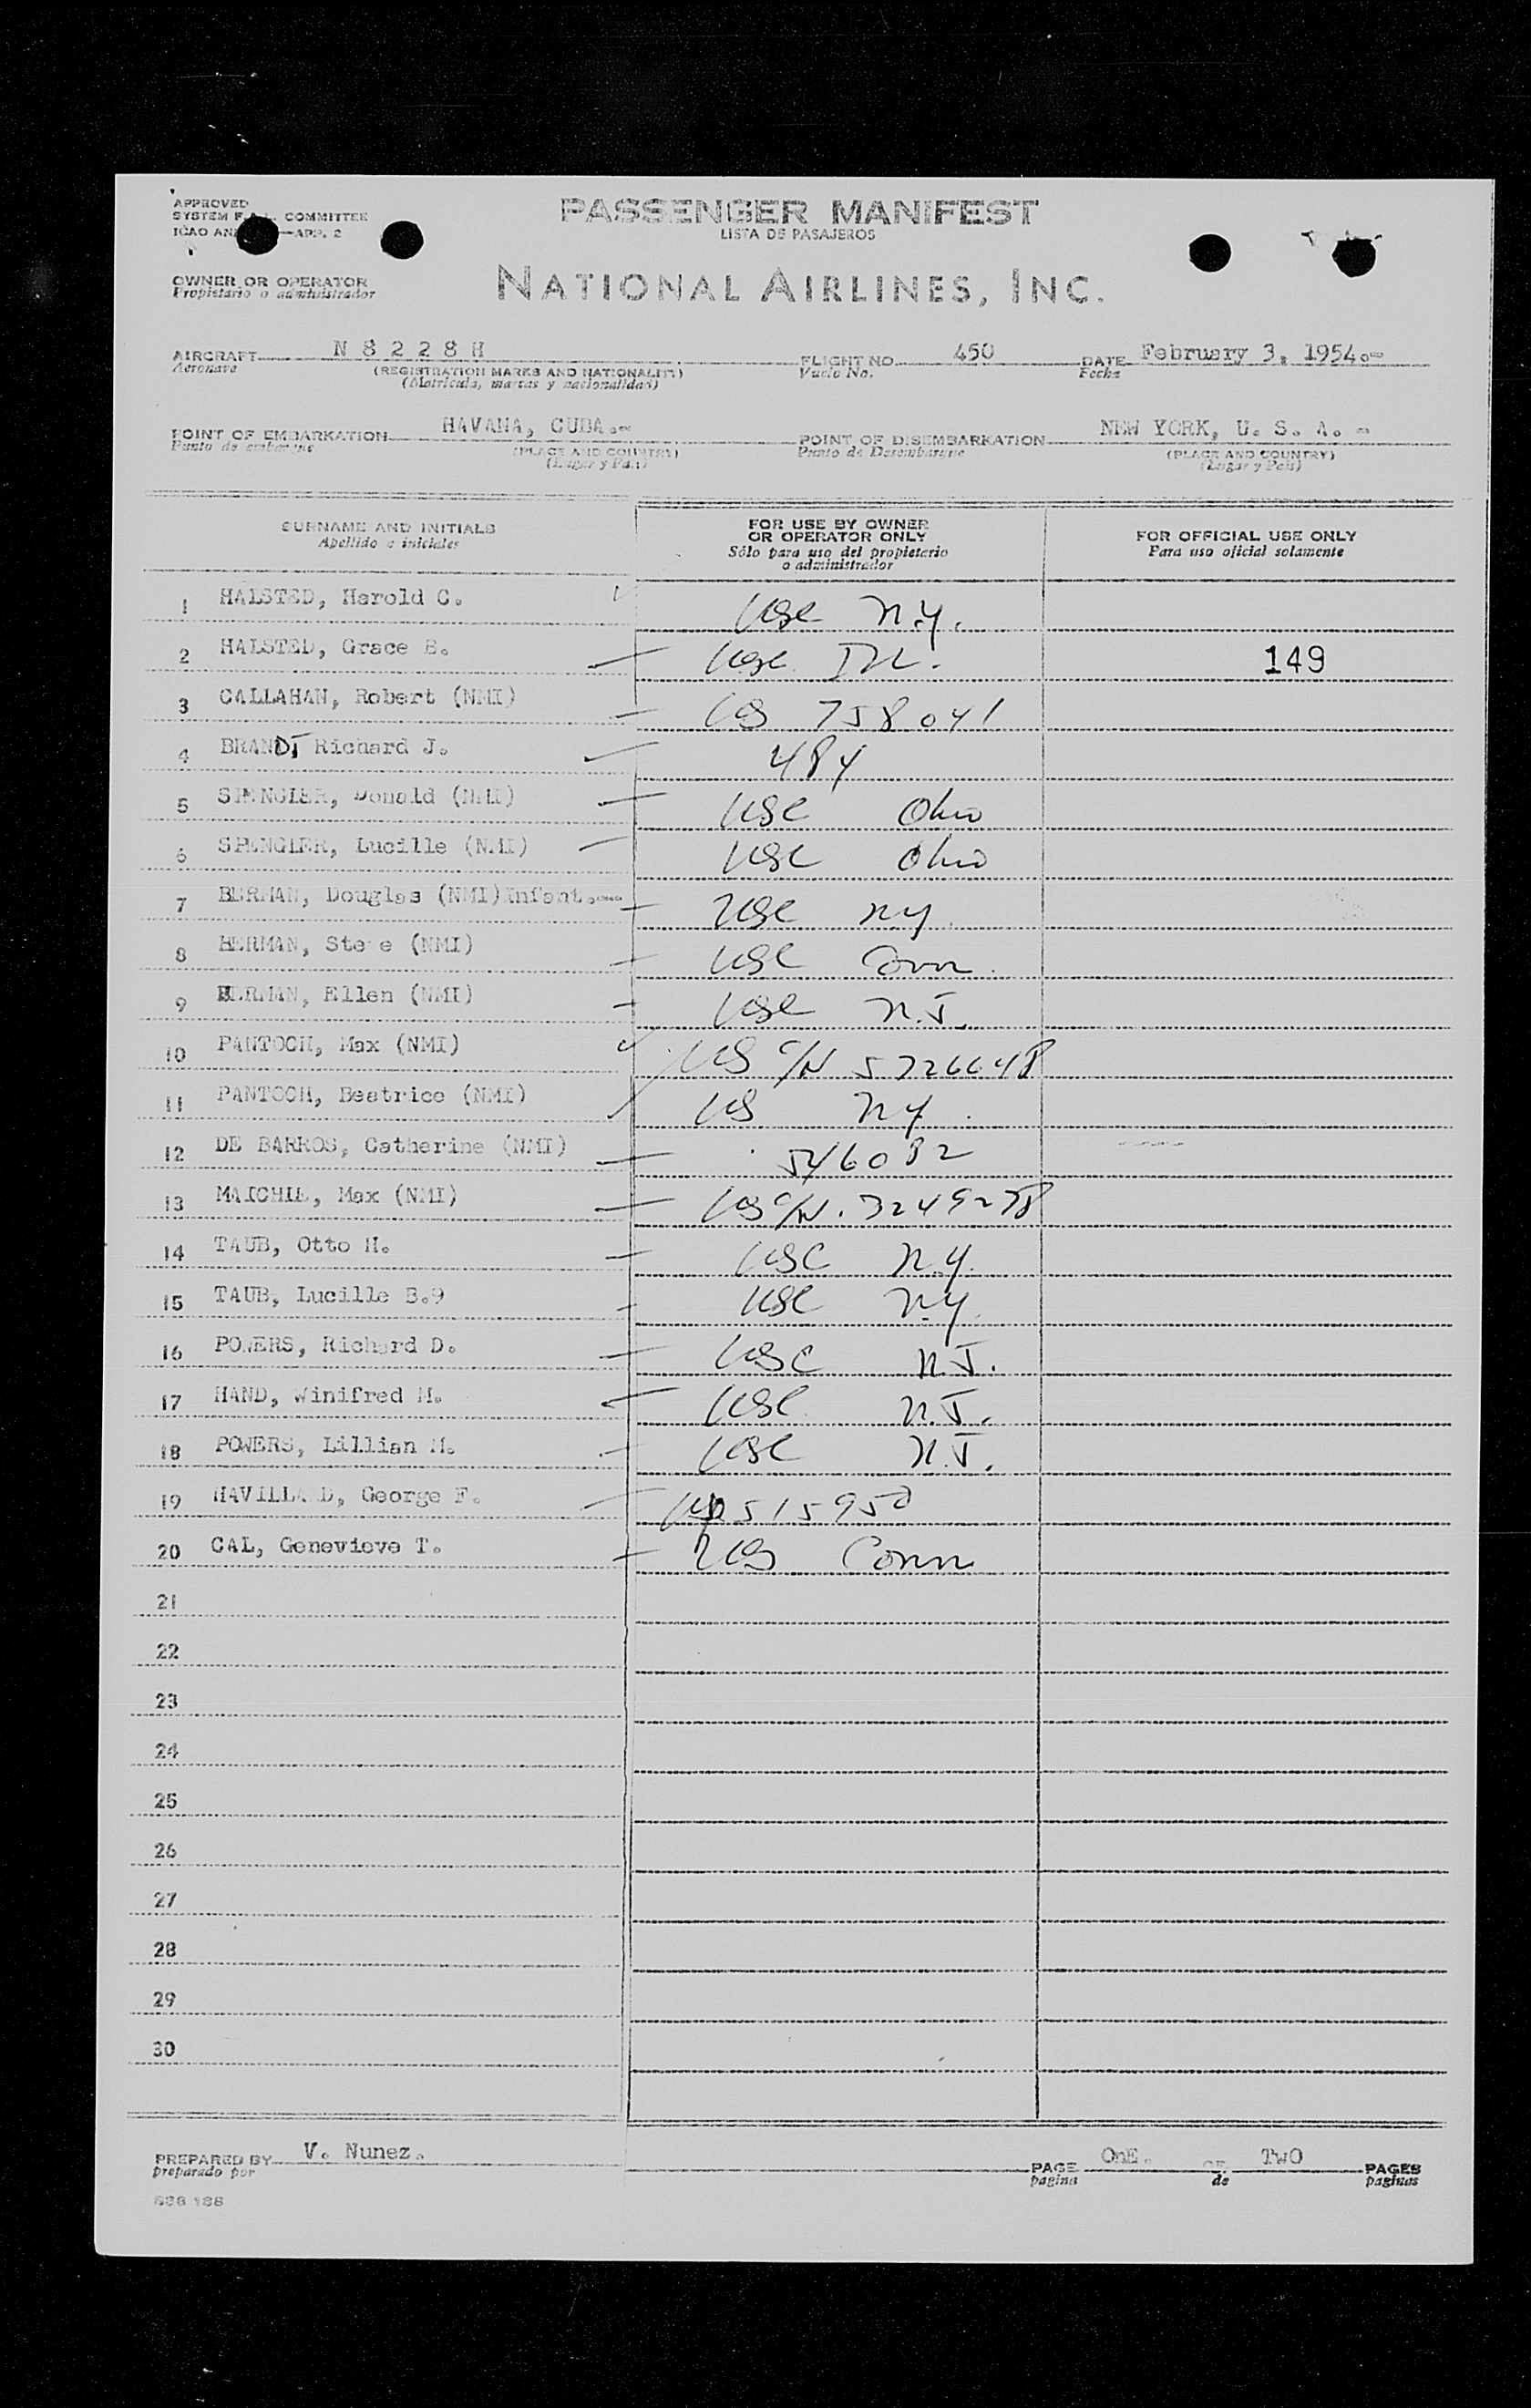 APPROVED
SYSTEM F.A.L. COMMITTEE
ICAO AN —APP. 2
PASSENGER MANIFEST
LISTA DE PASAJEROS
OWNER OR OPERATOR
Propietario o administrador
NATIONAL AIRLINES, INC.
AIRCRAFT N 8 2 2 8 H FLIGHT NO. 450 DATE February 3, 1954.-
Aeronave (REGISTRATION MARKS AND NATIONALITY) Vuelo No. Fecha
(Matricula, marcas y nacionalidad)
POINT OF EMBARKATION HAVANA, CUBA.- POINT OF DISEMBARKATION NEW YORK, U. S. A. -
Punto de embarque (PLACE AND COUNTRY) Punto de Desembarque (PLACE AND COUNTRY)
(Lugar y País) (Lugar y País)
SURNAME AND INITIALS
Apellido e iniciales
FOR USE BY OWNER
OR OPERATOR ONLY
Sólo para uso del propietario
o administrador
FOR OFFICIAL USE ONLY
Para uso oficial solamente
1 HALSTED, Harold C. USC N.Y.
2 HALSTED, Grace B. USC 149
3 CALLAHAN, Robert (NMI) US 758041
4 BRANDT Richard J. 484
5 SPENGLER, Donald (NMI) USC Ohio
6 SPENGLER, Lucille (NMI) USC Ohio
7 BERMAN, Douglas (NMI)Infant.-- USC NY
8 BERMAN, Ste e (NMI) USC Conn.
9 BERMAN, Ellen (NMI) USC N.J.
10 PANTOCH, Max (NMI) US C/N 5726648
11 PANTOCH, Beatrice (NMI) US NY.
12 DE BARROS, Catherine (NMI) 546082
13 Max (NMI) US C/N.
14 TAUB, Otto H. USC N.Y.
15 TAUB, Lucille B.9 USC N.Y.
16 POWERS, Richard D. USC N.J.
17 HAND, Winifred M. USC N.J.
18 POWERS, Lillian M. USC N.J.
19 HAVILLA D, George F. 515950
20 CAL, Genevieve T. US Conn
21
22
23
24
25
26
27
28
29
30
PREPARED BY V. Nunez. PAGE OnE. OF TWO PAGES
preparado por pagina de paginas